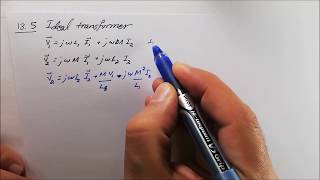 13.5 Ideal transformer
V₁ = jωL₁ I₁ + jωM I₂
V₂ = jωM I₁ + jωL₂ I₂
V₂ = jωL₂ I₂ + M V₁/L₁ - jωM² I₂/L₁